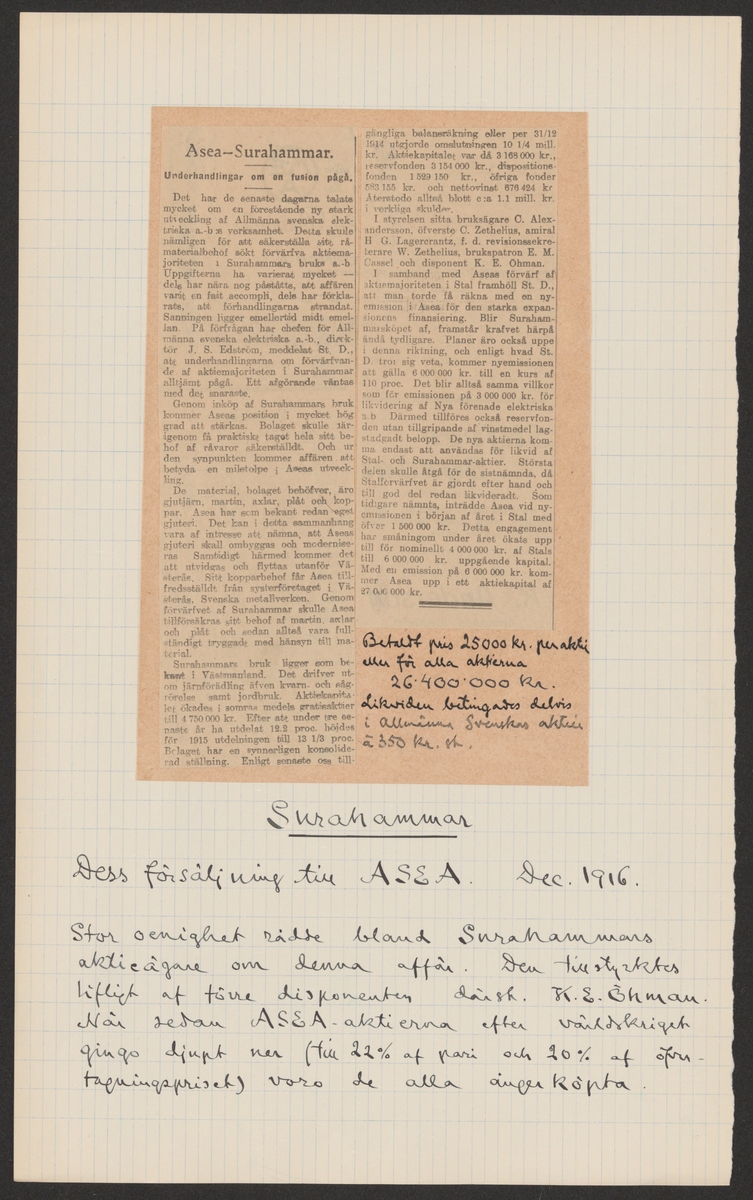 Asea—Surahammar.
Underhandlingar om en fusion pågå.
Det har de senaste dagarna talats
mycket om en förestående ny stark
utveckling af Allmänna svenska elek-
triska a.-b:s verksamhet. Detta skulle
nämligen för att säkerställa sitt rå-
materialbehof sökt förvärfva aktiema-
joriteten i Surahammars bruks a.-b
Uppgifterna ha varierat mycket —
dels har nära nog påståtts, att affären
varit en fait accompli, dels har förkla-
rats, att förhandlingarna strandat.
Sanningen ligger emellertid midt emel-
lan. På förfrågan har chefen för All-
männa svenska elektriska a.-b., direk-
tör J. S. Edström, meddelat St. D.,
att underhandlingarna om förvärfvan-
de af aktiemajoriteten i Surahammar
alltjämt pågå. Ett afgörande väntas
med det snaraste.
Genom inköp af Surahammars bruk
kommer Aseas position i mycket hög
grad att stärkas. Bolaget skulle där-
igenom få praktiskt taget hela sitt be-
hof af råvaror säkerställdt. Och ur
den synpunkten kommer affären att
betyda en milstolpe i Aseas utveck-
ling.
De material, bolaget behöfver, äro
gjutjärn, martin, axlar, plåt och kop-
par. Asea har som bekant redan eget
gjuteri. Det kan i detta sammanhang
vara af intresse att nämna, att Aseas
gjuteri skall ombyggas och modernise-
ras Samtidigt härmed kommer det
att utvidgas och flyttas utanför Vä-
sterås. Sitt kopparbehof får Asea till-
fredsställdt från systerföretaget i Vä-
sterås, Svenska metallverken. Genom
förvärfvet af Surahammar skulle Asea
tillförsäkras sitt behof af martin, axlar
och plåt och sedan alltså vara full-
ständigt tryggade med hänsyn till ma-
terial.
Surahammars bruk ligger som be-
kant i Västmanland. Det drifver ut-
om järnförädling äfven kvarn- och såg-
rörelse samt jordbruk. Aktiekapita-
let ökades i somras medels gratisaktier
till 4 750 000 kr. Efter att under tre se-
naste år ha utdelat 12.2 proc. höjdes
för 1915 utdelningen till 13 1/3 proc.
Bolaget har en synnerligen konsolide-
rad ställning. Enligt senaste oss till-
gängliga balansräkning eller per 31/12
1914 utgjorde omslutningen 10 1/4 mill.
kr. Aktiekapitalet var då 3 168 000 kr.,
reservfonden 3 154 000 kr., dispositions-
fonden 1 529 150 kr., öfriga fonder
583 155 kr. och nettovinst 676 424 kr
Återstodo alltså blott c:a 1.1 mill. kr.
i verkliga skulder.
I styrelsen sitta bruksägare C. Alex-
andersson, öfverste C. Zethelius, amiral
H G. Lagercrantz, f. d. revisionssekre-
terare W. Zethelius, brukspatron E. M.
Cassel och disponent K. E. Öhman.
I samband med Aseas förvärf af
aktiemajoriteten i Stal framhöll St. D.,
att man torde få räkna med en ny-
emission i Asea för den starka expan-
sionens finansiering. Blir Suraham-
marsköpet af, framstår krafvet härpå
ändå tydligare. Planer äro också uppe
i denna riktning, och enligt hvad St.
D. tror sig veta, kommer nyemissionen
att gälla 6 000 000 kr. till en kurs af
110 proc. Det blir alltså samma villkor
som för emissionen på 3 000 000 kr. för
likvidering af Nya förenade elektriska
a.b Därmed tillföres också reservfon-
den utan tillgripande af vinstmedel lag-
stadgadt belopp. De nya aktierna kom-
ma endast att användas för likvid af
Stal- och Surahammar-aktier. Största
delen skulle åtgå för de sistnämnda, då
Stalförvärfvet är gjordt efter hand och
till god del redan likvideradt. Som
tidigare nämnts, inträdde Asea vid ny-
emissionen i början af året i Stal med
öfver 1 500 000 kr. Detta engagement
har småningom under året ökats upp
till för nominellt 4 000 000 kr. af Stals
till 6 000 000 kr. uppgående kapital.
Med en emission på 6 000 000 kr. kom-
mer Asea upp i ett aktiekapital af
27 000 000 kr.
Betaldt pris 25000 kr. per aktie
eller för alla aktierna
26.400.000 kr.
Likviden betingades delvis
i Allmänna Svenskas aktier
à 350 kr. st.
Surahammar
Dess försäljning till ASEA. Dec. 1916.
Stor oenighet rådde bland Surahammars
aktieägare om denna affär. Den tillstyrktes
lifligt af förre disponenten därst. K. E. Öhman.
När sedan ASEA-aktierna efter världskriget
gingo djupt ner (till 22% af pari och 20% af öfver-
tagningspriset) voro de alla ångerköpta.